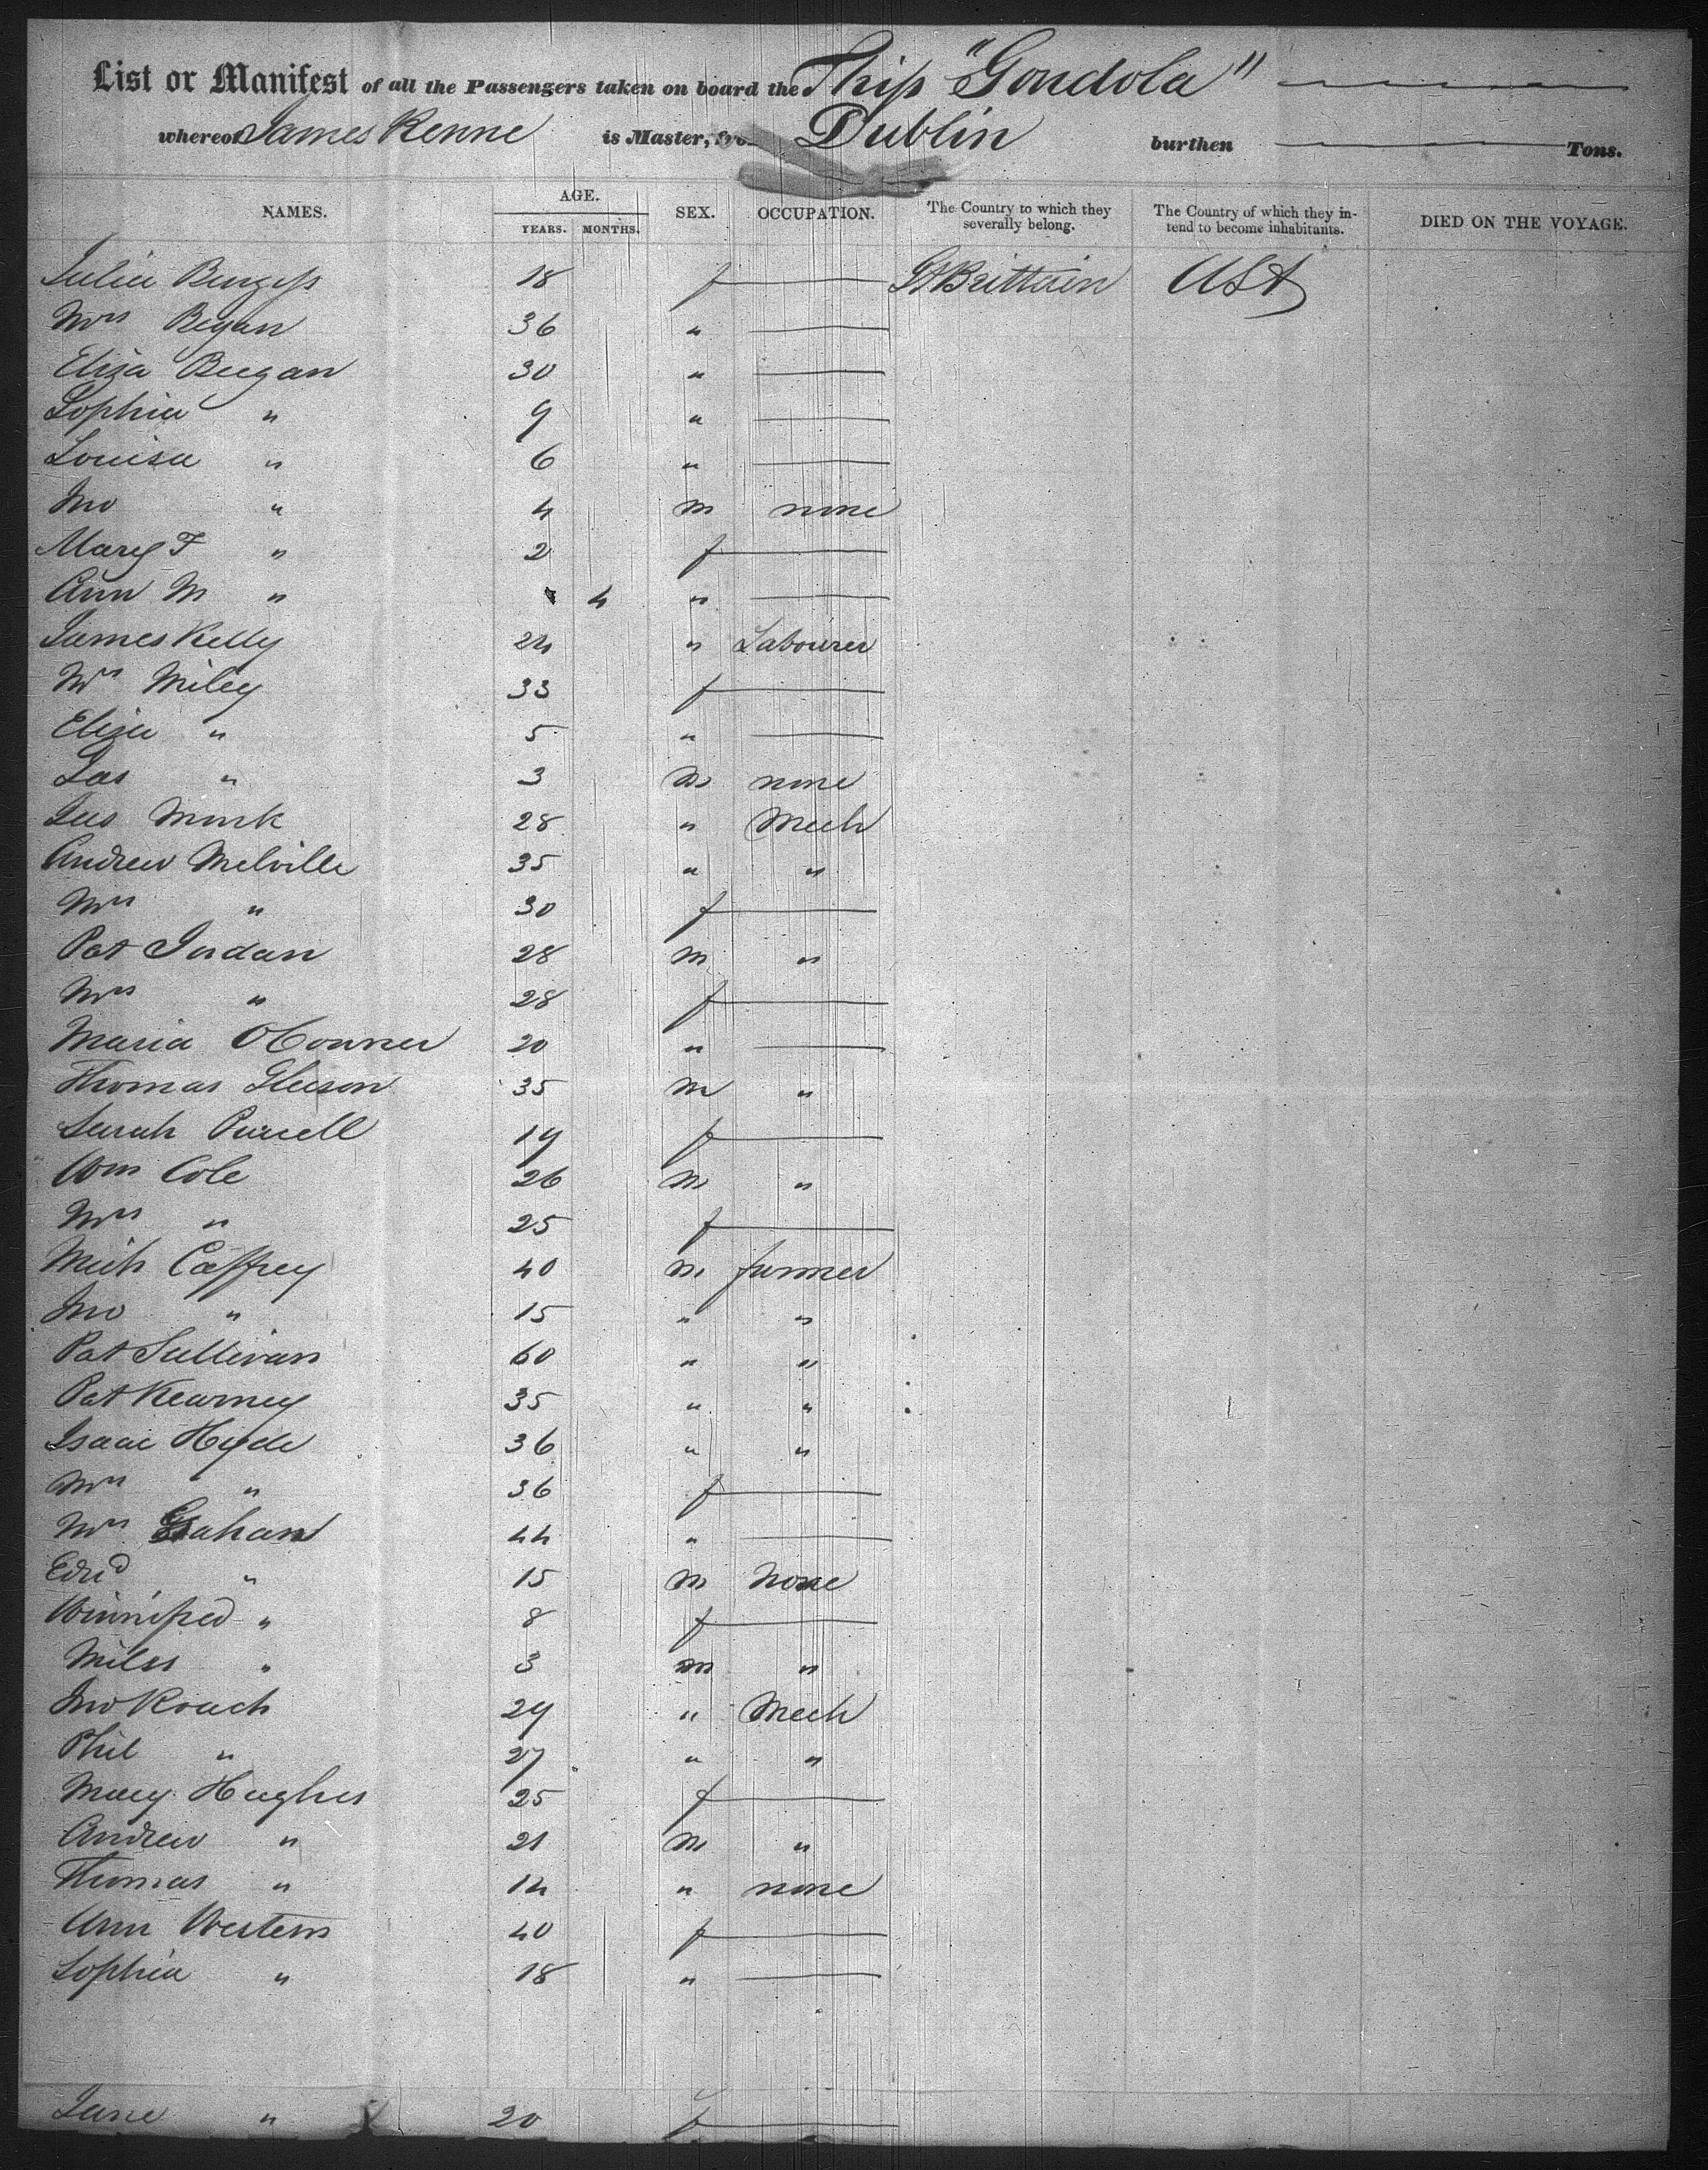 List or Manifest of all the Passengers taken on board the Ship "Gondola"
whereof James Renne is Master, from Dublin burthen Tons.
NAMES. AGE. YEARS. MONTHS. SEX. OCCUPATION. The Country to which they severally belong. The Country of which they intend to become inhabitants. DIED ON THE VOYAGE.
Julia Burgess 18 f Gt Brittain USA
Mrs Regan 36 "
Eliza Beegan 30 "
Sophia " 9 "
Louisa " 6 "
Jno " 4 m none
Mary F " 2 f
Ann M " 4 "
James Kelly 24 " Labourer
Mrs Miley 33 f
Eliza " 5 "
Jas " 3 m none
Jas Monk 28 " Mech
Andrew Melville 35 " "
Mrs " 30 f
Pat Jordan 28 m "
Mrs " 28 f
Maria OConner 20 "
Thomas Gleeson 35 m "
Sarah Purcell 19 f
Wm Cole 26 m "
Mrs " 25 f
Mich Caffrey 40 m farmer
Jno " 15 " "
Pat Sullivan 60 " "
Pat Kearney 35 " "
Isaac Hyde 36 " "
Mrs " 36 f
Mrs Gahan 44 "
Edwd " 15 m None
Winnifred " 8 f
Miles " 3 m "
Jno Roach 29 " Mech
Phil " 27 " "
Mary Hughes 25 f
Andrew " 21 m "
Thomas " 14 " none
Ann Western 40 f
Sophia " 18 "
Jane " 20 f